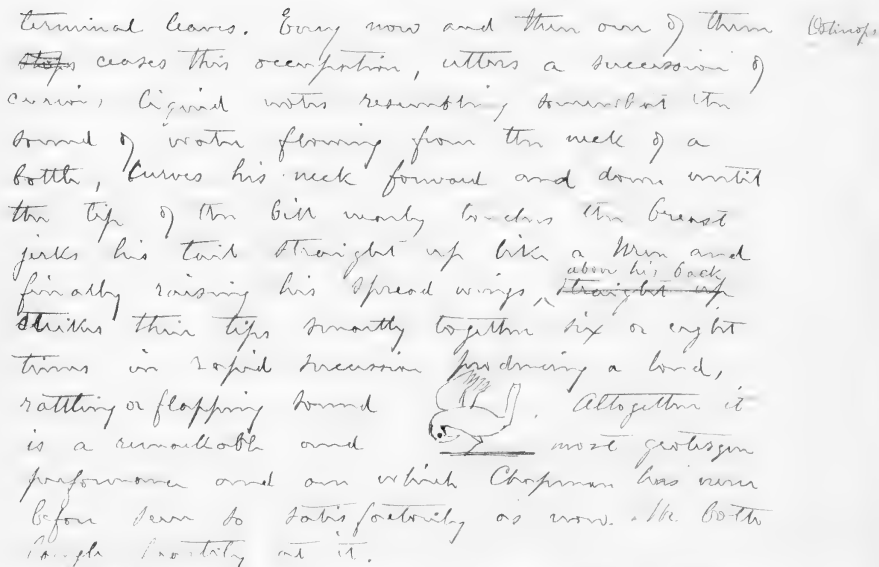 terminal leaves. Every now and then one of them
stops ceases this occupation, utters a succession of
curious liquid notes resembling somewhat the
sound of water flowing from the neck of a
bottle, curves his neck forward and down until
the tip of the bill nearly touches the breast
jerks his tail straight up like a Wren and
finally raising his spread wings above his back straight up
strikes their tips smartly together six or eight
times in rapid succession producing a loud,
rattling or flapping sound. Altogether it
is a remarkable and most grotesque
performance and one which Chapman has never
before seen so satisfactorily as now. We both
laugh heartily at it.